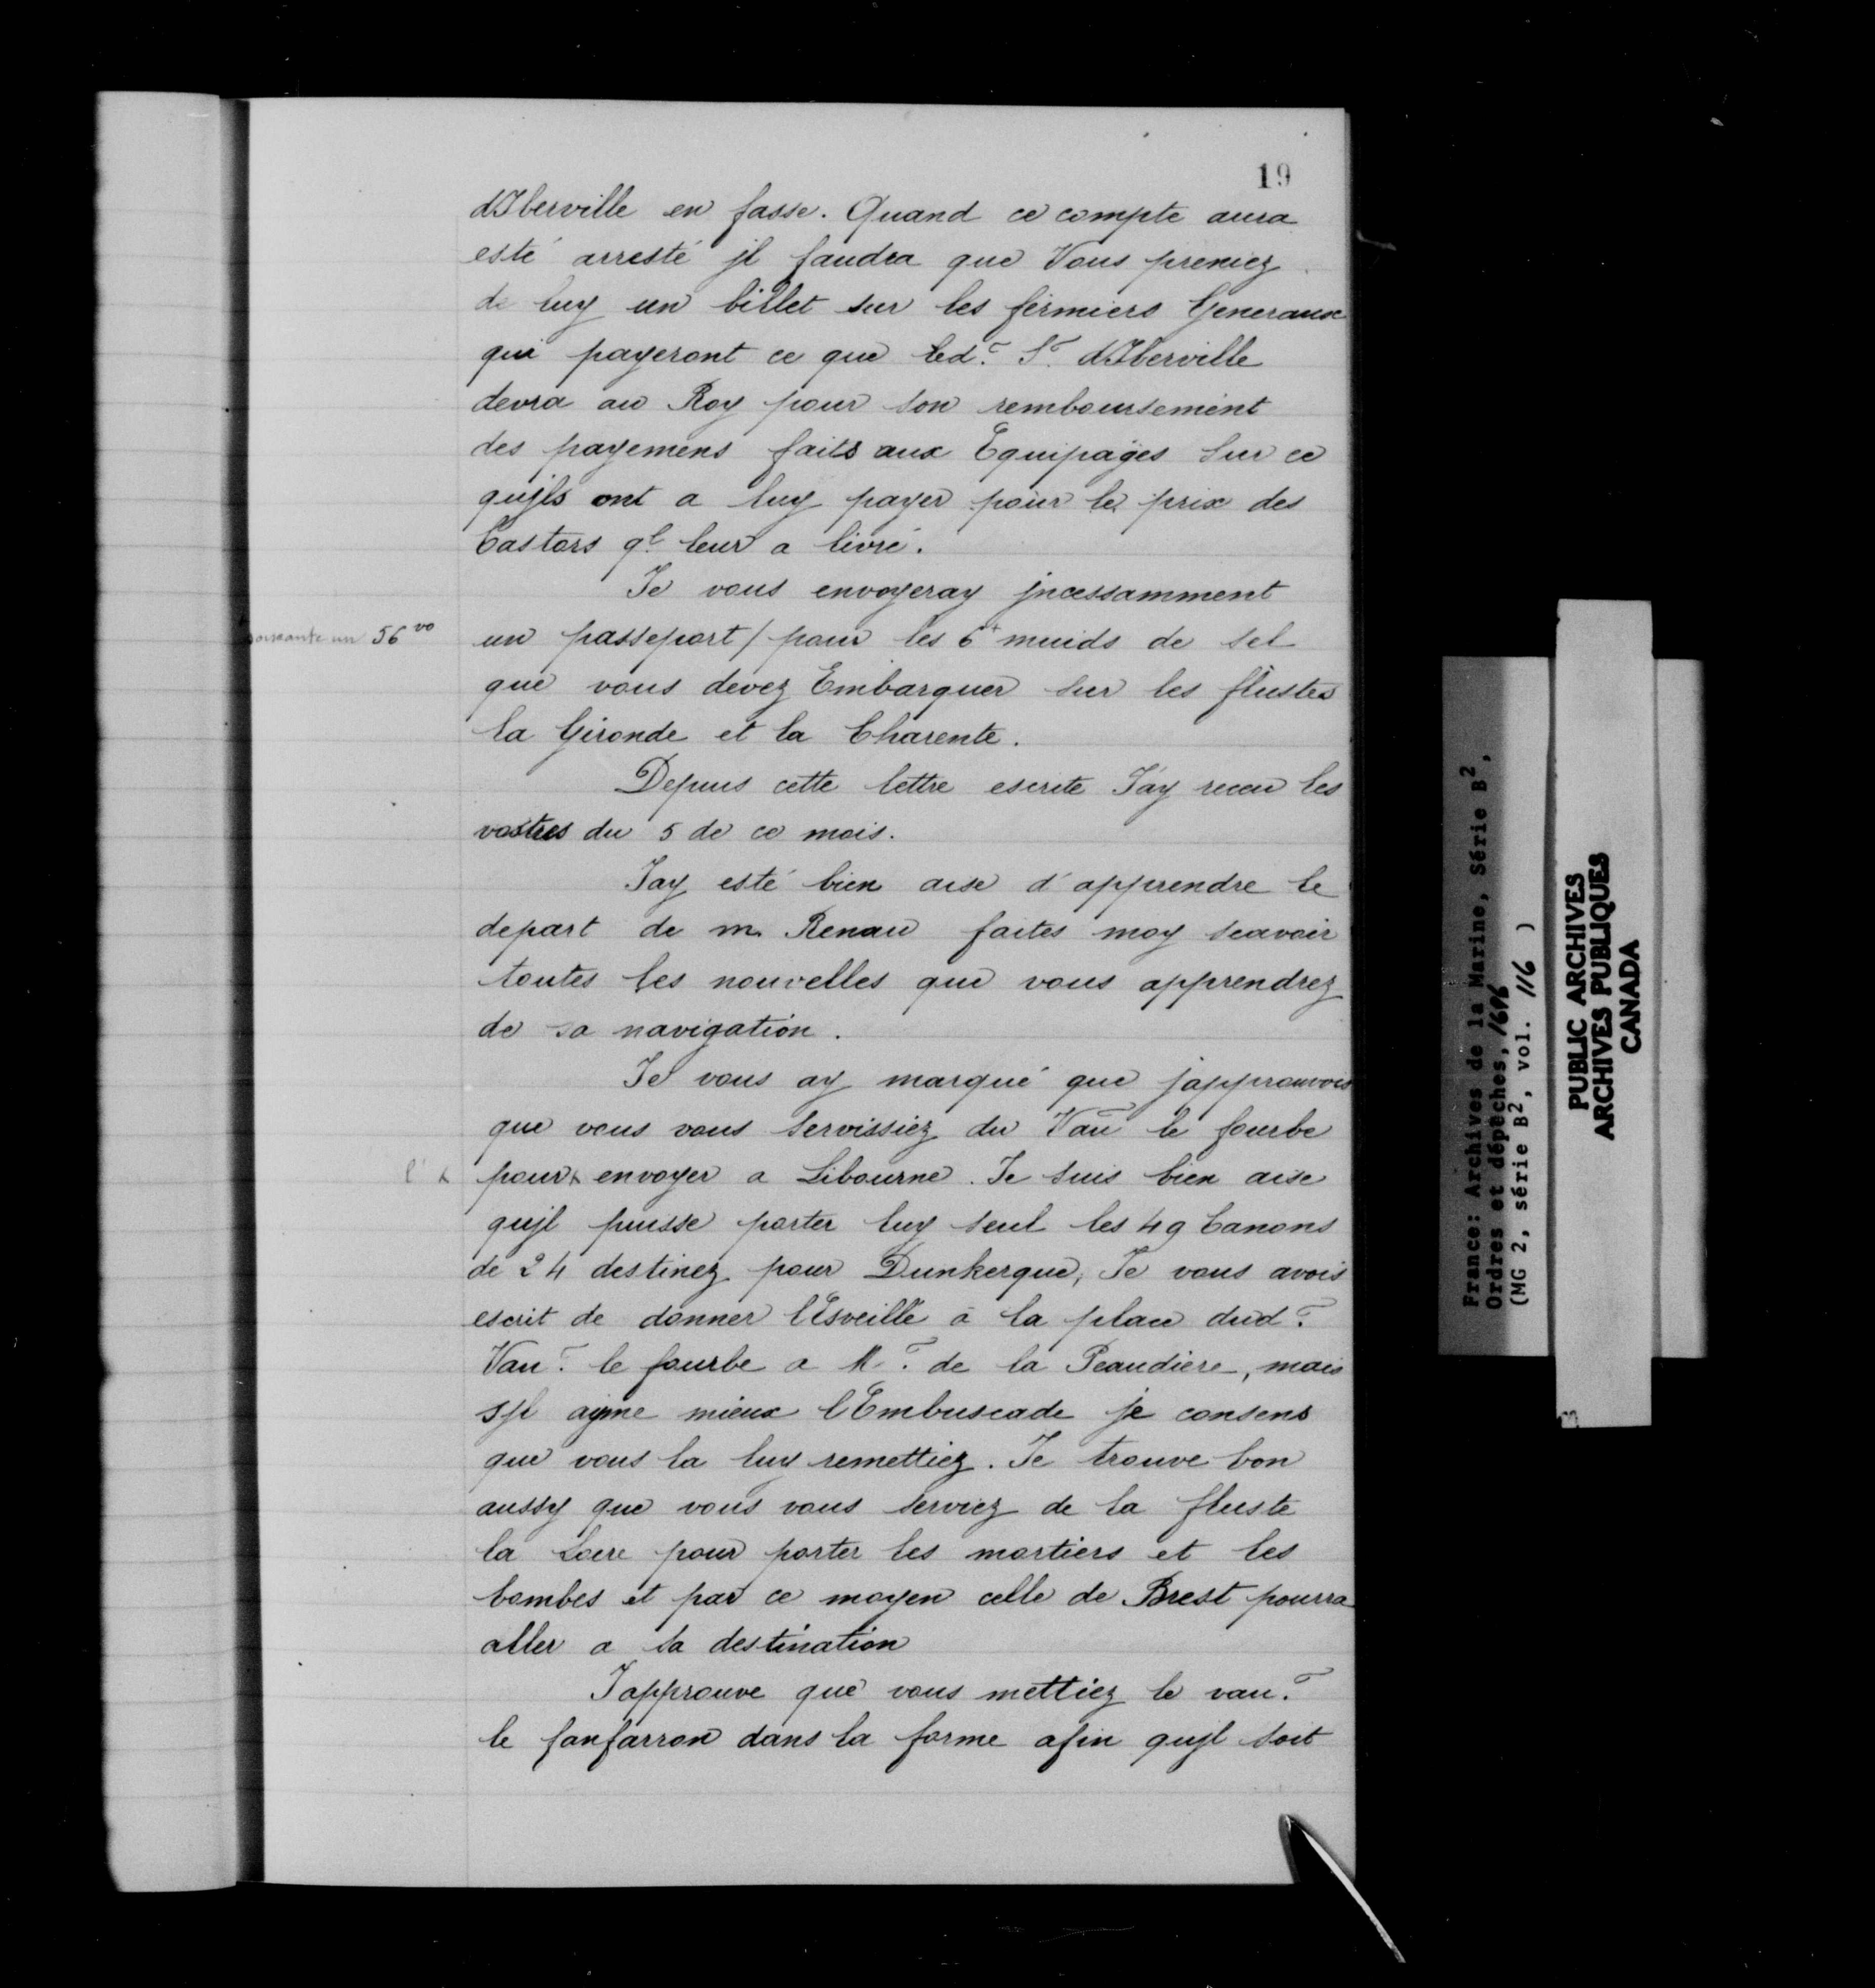 19
d'Iberville en fasse. Quand ce compte aura
esté arresté jl faudra que Vous preniez
de luy un billet sur les fermiers Generaux
qui payeront ce que led.t S.r d'Iberville
devra au Roy pour son remboursement
des payemens faits aux Equipages sur ce
qujls ont a luy payer pour le prix des
Castors q.l leur a livré.
Je vous envoyeray jncessamment
soixante un 56 vo
un passeport / pour les 6+ muids de sel
que vous devez Embarquer sur les flustes
la Gironde et la Charente.
Depuis cette lettre escrite J'ay receu les
vostres du 5 de ce mois.
Jay esté bien aise d'apprendre le
depart de m. Renau faites moy scavoir
toutes les nouvelles que vous apprendrez
de sa navigation.
Je vous ay marqué que japprouvois
que vous vous servissiez du Vau le fourbe
l' x
pour x envoyer a Libourne. Je suis bien aise
qujl puisse porter luy seul les 49 Canons
de 24 destinez pour Dunkerque, Je vous avois
escrit de donner l'Esveillé a la place dud.t
Vau.r le fourbe a M.r de la Peaudiere, mais
sjl ayme mieux l'Embuscade je consens
que vous la luy remettiez. Je trouve bon
aussy que vous vous serviez de la fluste
la Loire pour porter les mortiers et les
bombes et par ce moyen celle de Brest pourra
aller a sa destination
Japprouve que vous mettiez le vau.r
le fanfarron dans la forme afin qujl soit
France: Archives de la Marine, Série B2,
Ordres et dépêches, 1696
(MG 2, série B2, vol. 116 )
PUBLIC ARCHIVES
ARCHIVES PUBLIQUES
CANADA